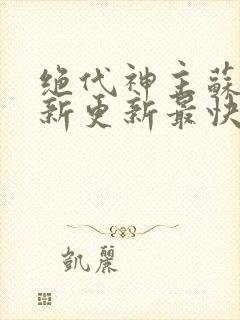 绝代神主蘇
新更新最快
凱麗